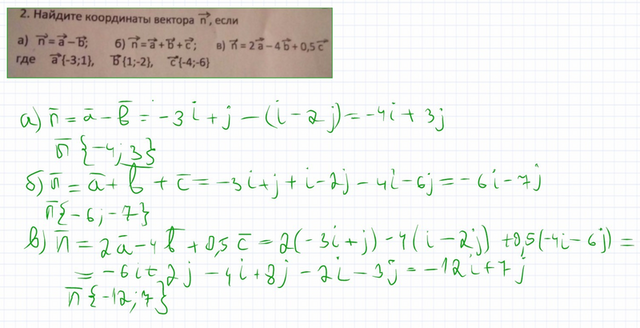 2. Найдите координаты вектора n⃗, если
а) n⃗=a⃗−b⃗; б) n⃗=a⃗+b⃗+c⃗; в) n⃗=2a⃗−4b⃗+0,5c⃗
где a⃗{-3;1}, b⃗{1;-2}, c⃗{-4;-6}
а) n̅ = a̅ − b̅ = −3i + j − (i−2j) = −4i + 3j
n̅ {−4;3}
б) n̅ = a̅ + b̅ + c̅ = −3i+j + i−2j − 4i−6j = −6i−7j
n̅{−6;−7}
в) n̅ = 2a̅−4b̅+0,5c̅ = 2(−3i+j)−4(i−2j)+0,5(−4i−6j) =
= −6i+2j −4i+8j −2i−3j = −12i+7j
n̅{−12;7}